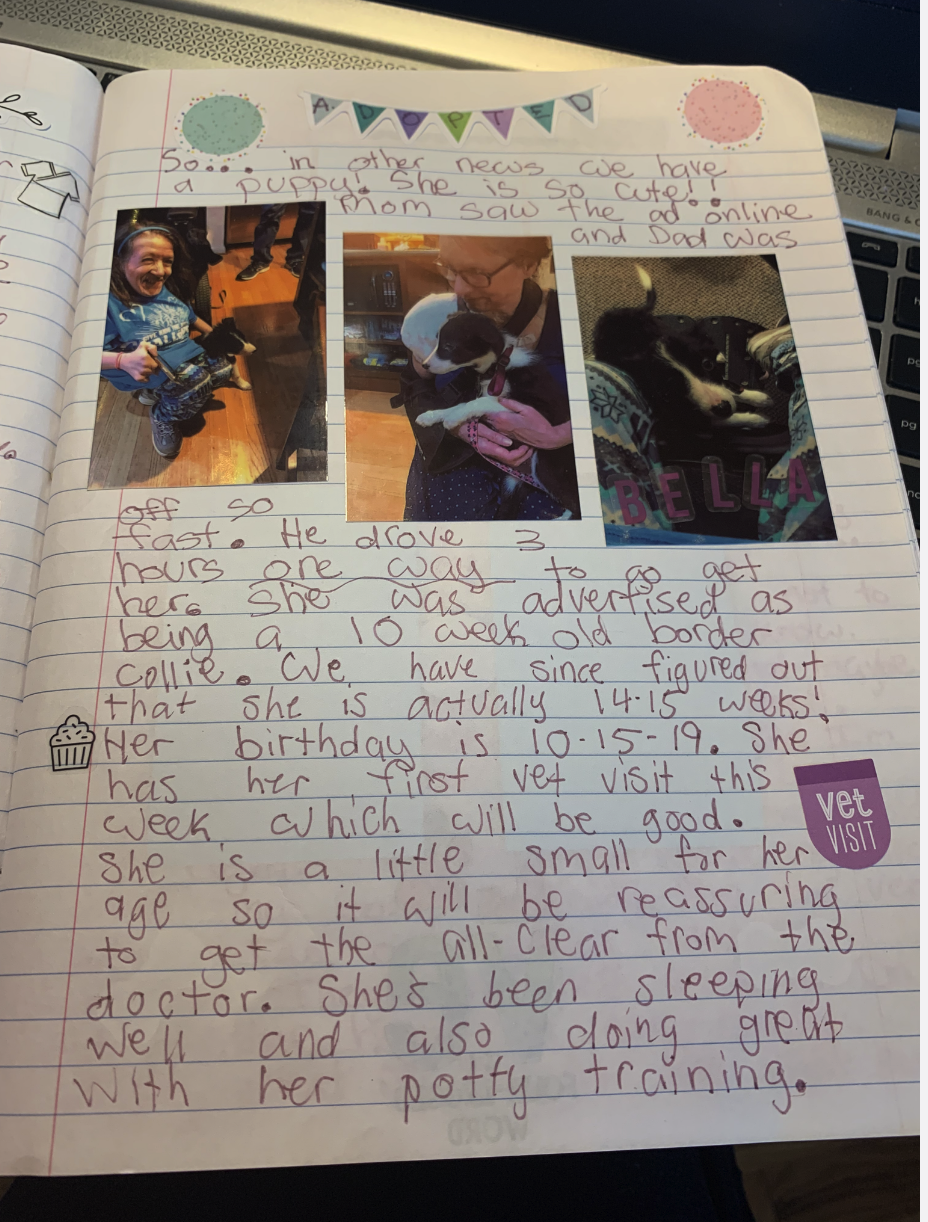 ADOPTED
So... in other news we have
a puppy! She is so cute!!
Mom saw the ad online
and Dad was
BELLA
off so
fast. He drove 3
hours one way to go get
her. She was advertised as
being a 10 week old border
collie. We have since figured out
that she is actually 14-15 weeks!
Her birthday is 10-15-19. She
has her first vet visit this
week which will be good.
vet
VISIT
She is a little small for her
age so it will be reassuring
to get the all-clear from the
doctor. She's been sleeping
well and also doing great
with her potty training.
WORD
BANG &
pg
pg